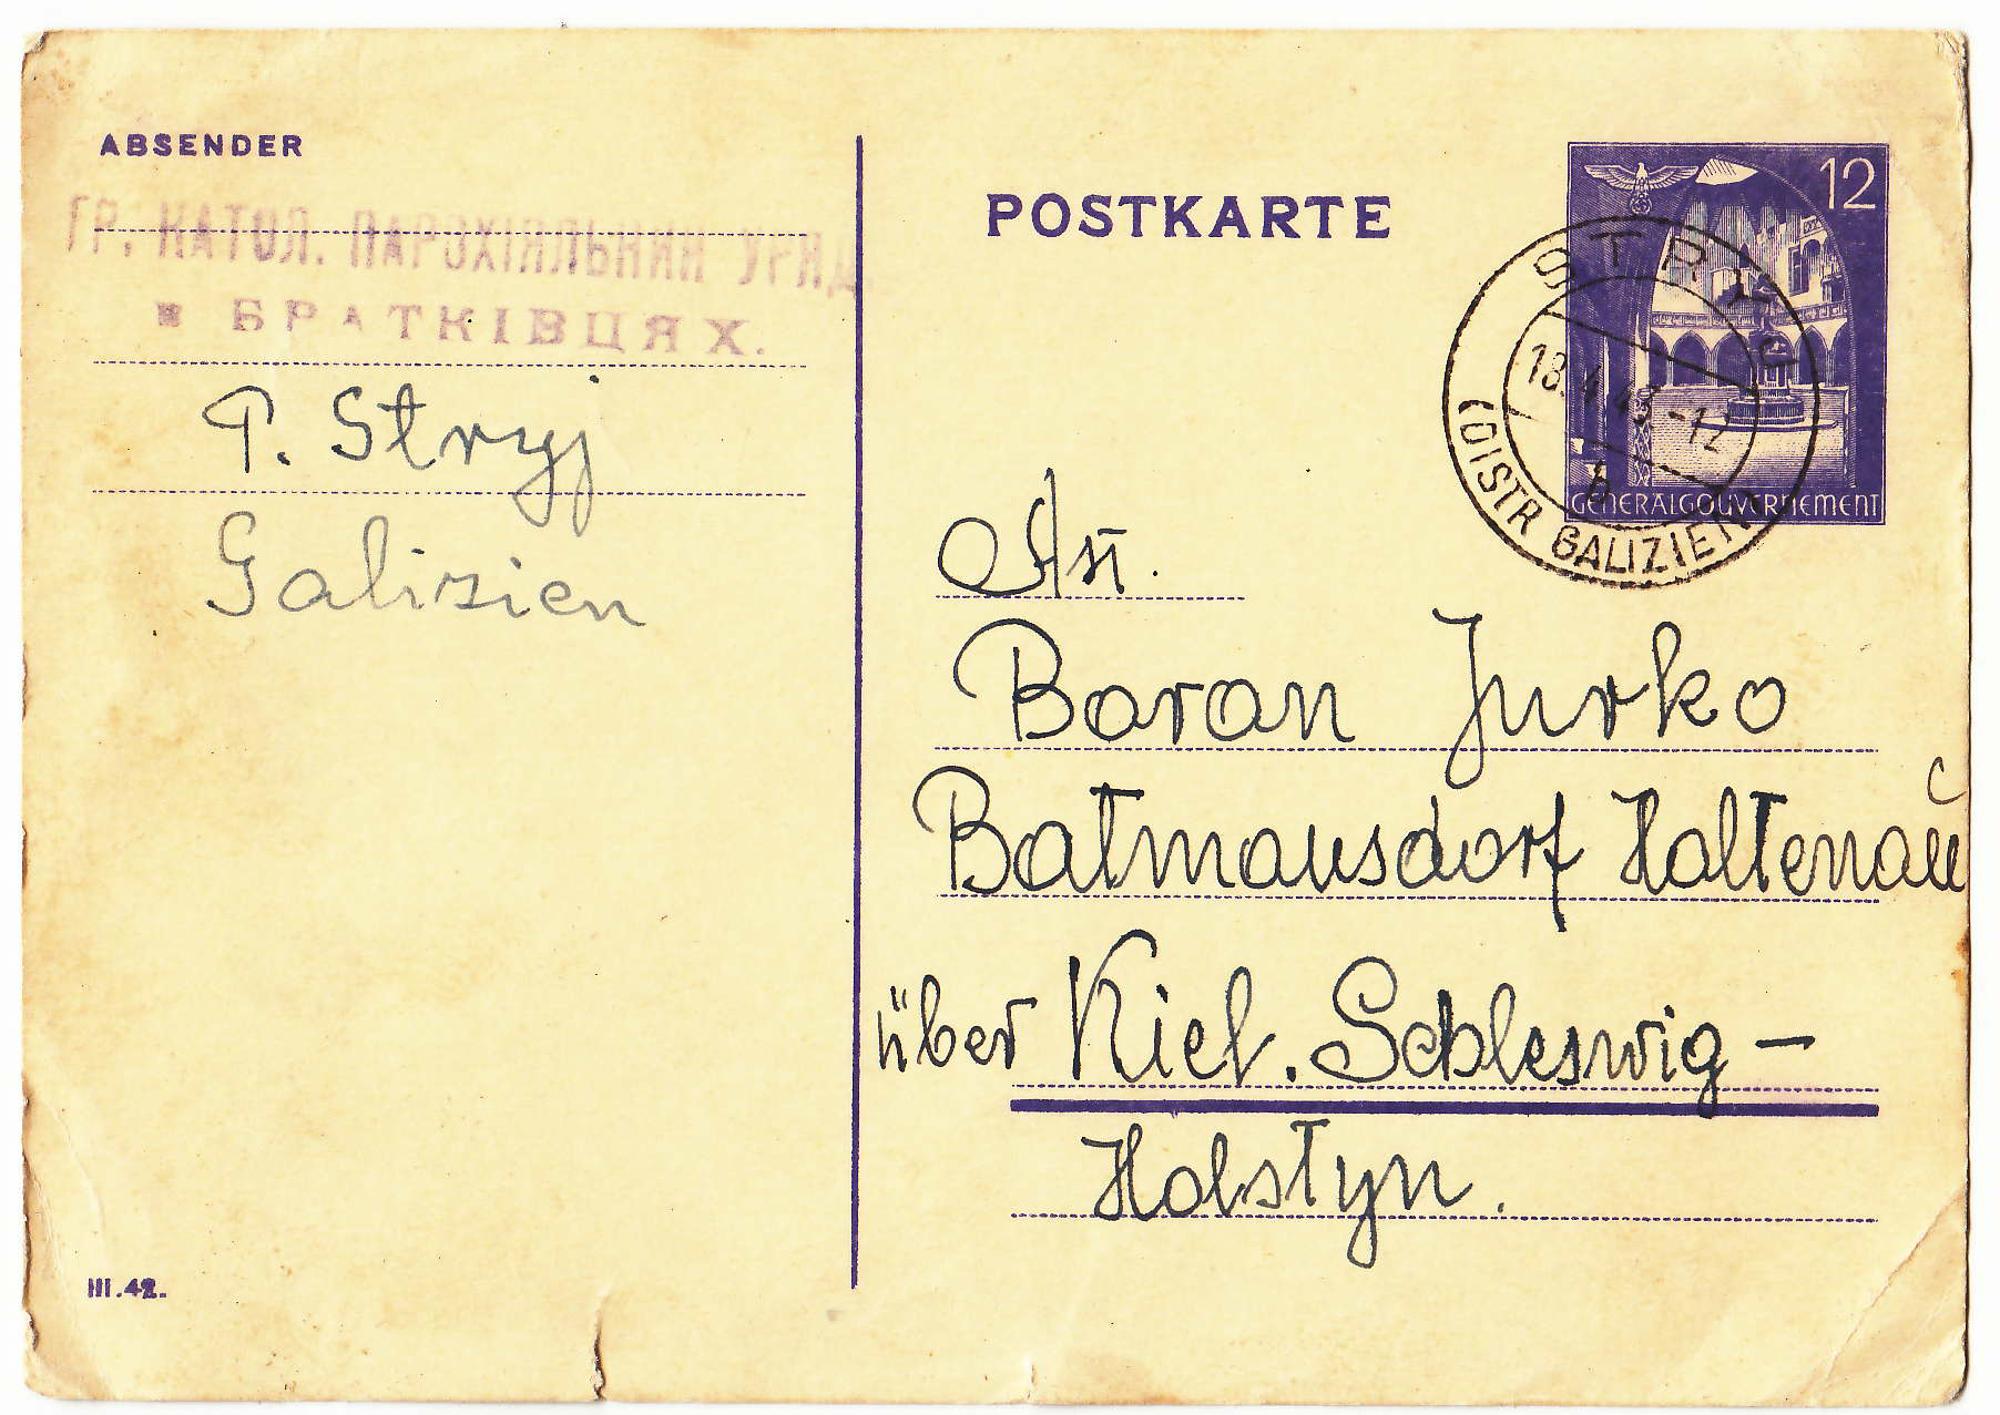 ABSENDER
ГР. КАТОЛ. ПАРОХІЯЛЬНИЙ УРЯД.
в БРАТКІВЦЯХ.
P. Stryj
Galizien
III.42.
POSTKARTE
12
GENERALGOUVERNEMENT
STRYJ
18.4.43-12
b
(DISTR GALIZIEN)
An.
Baran Jurko
Batmansdorf Holtenau
über Kiel. Schleswig –
Holstyn.